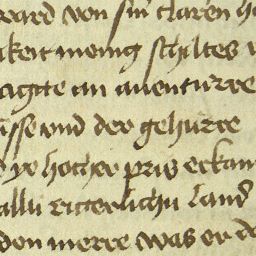 ward von sin claren h
keit menig schiltes
agte an auenturre
sse vnd der gehurre
yr hocher pris erkan
allu ritterlichu land
den merre was er de